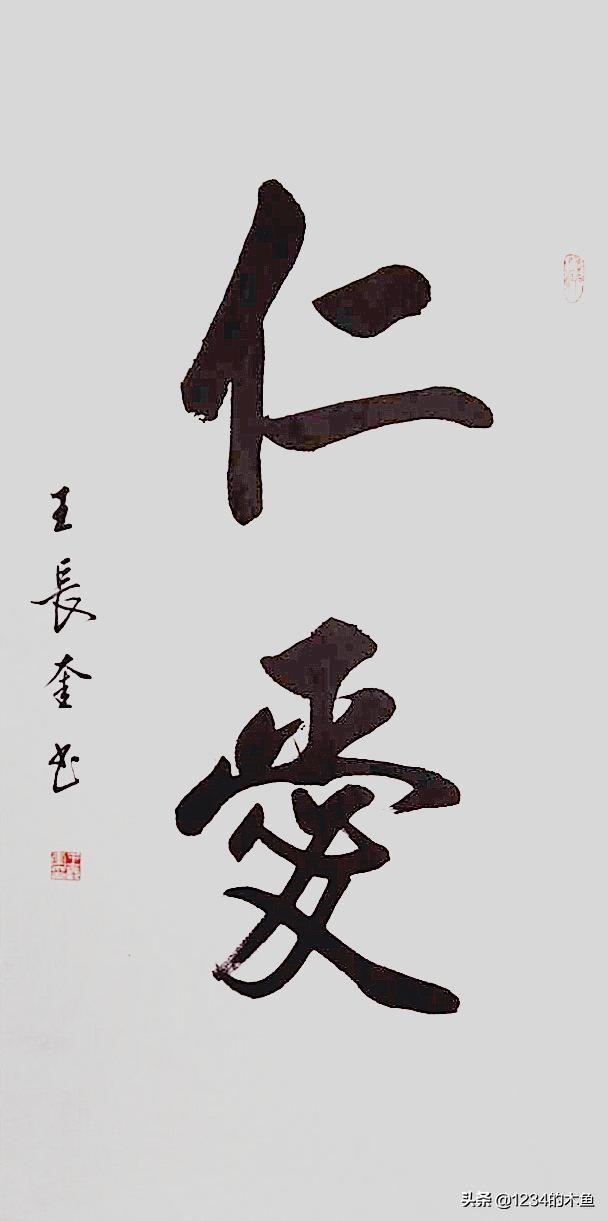 仁愛
王長奎书
头条 @1234的木鱼